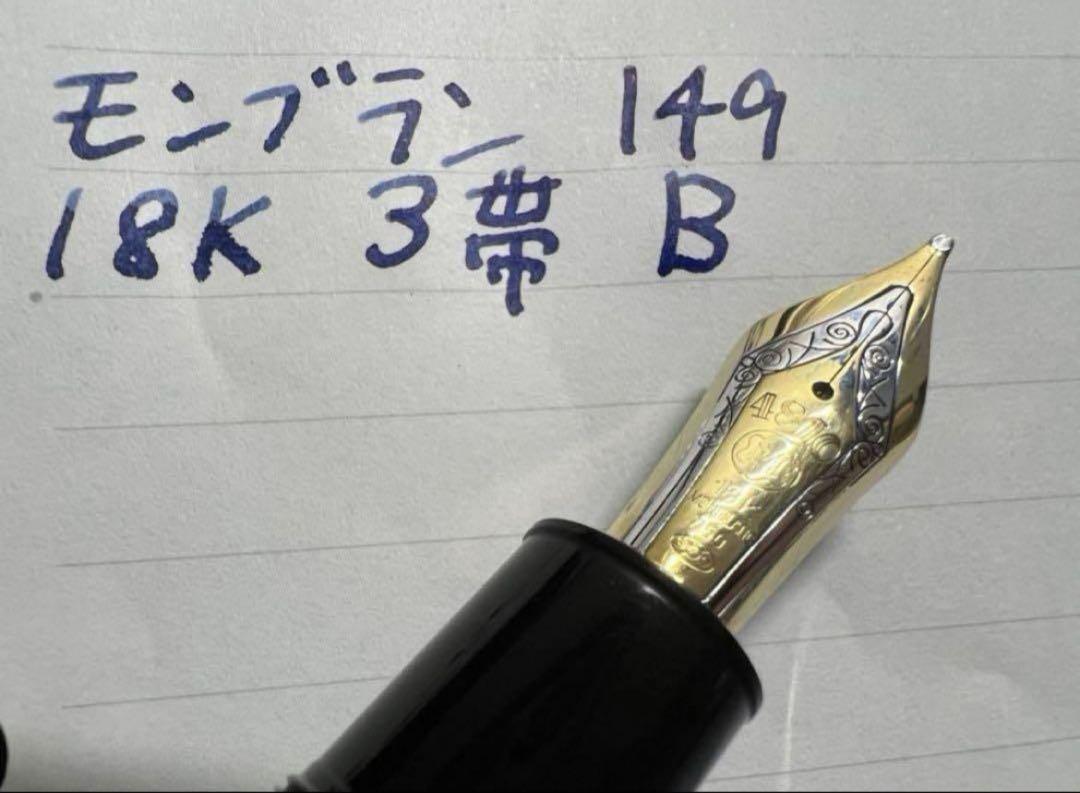 モンブラン 149
18K 3帯 B
4810